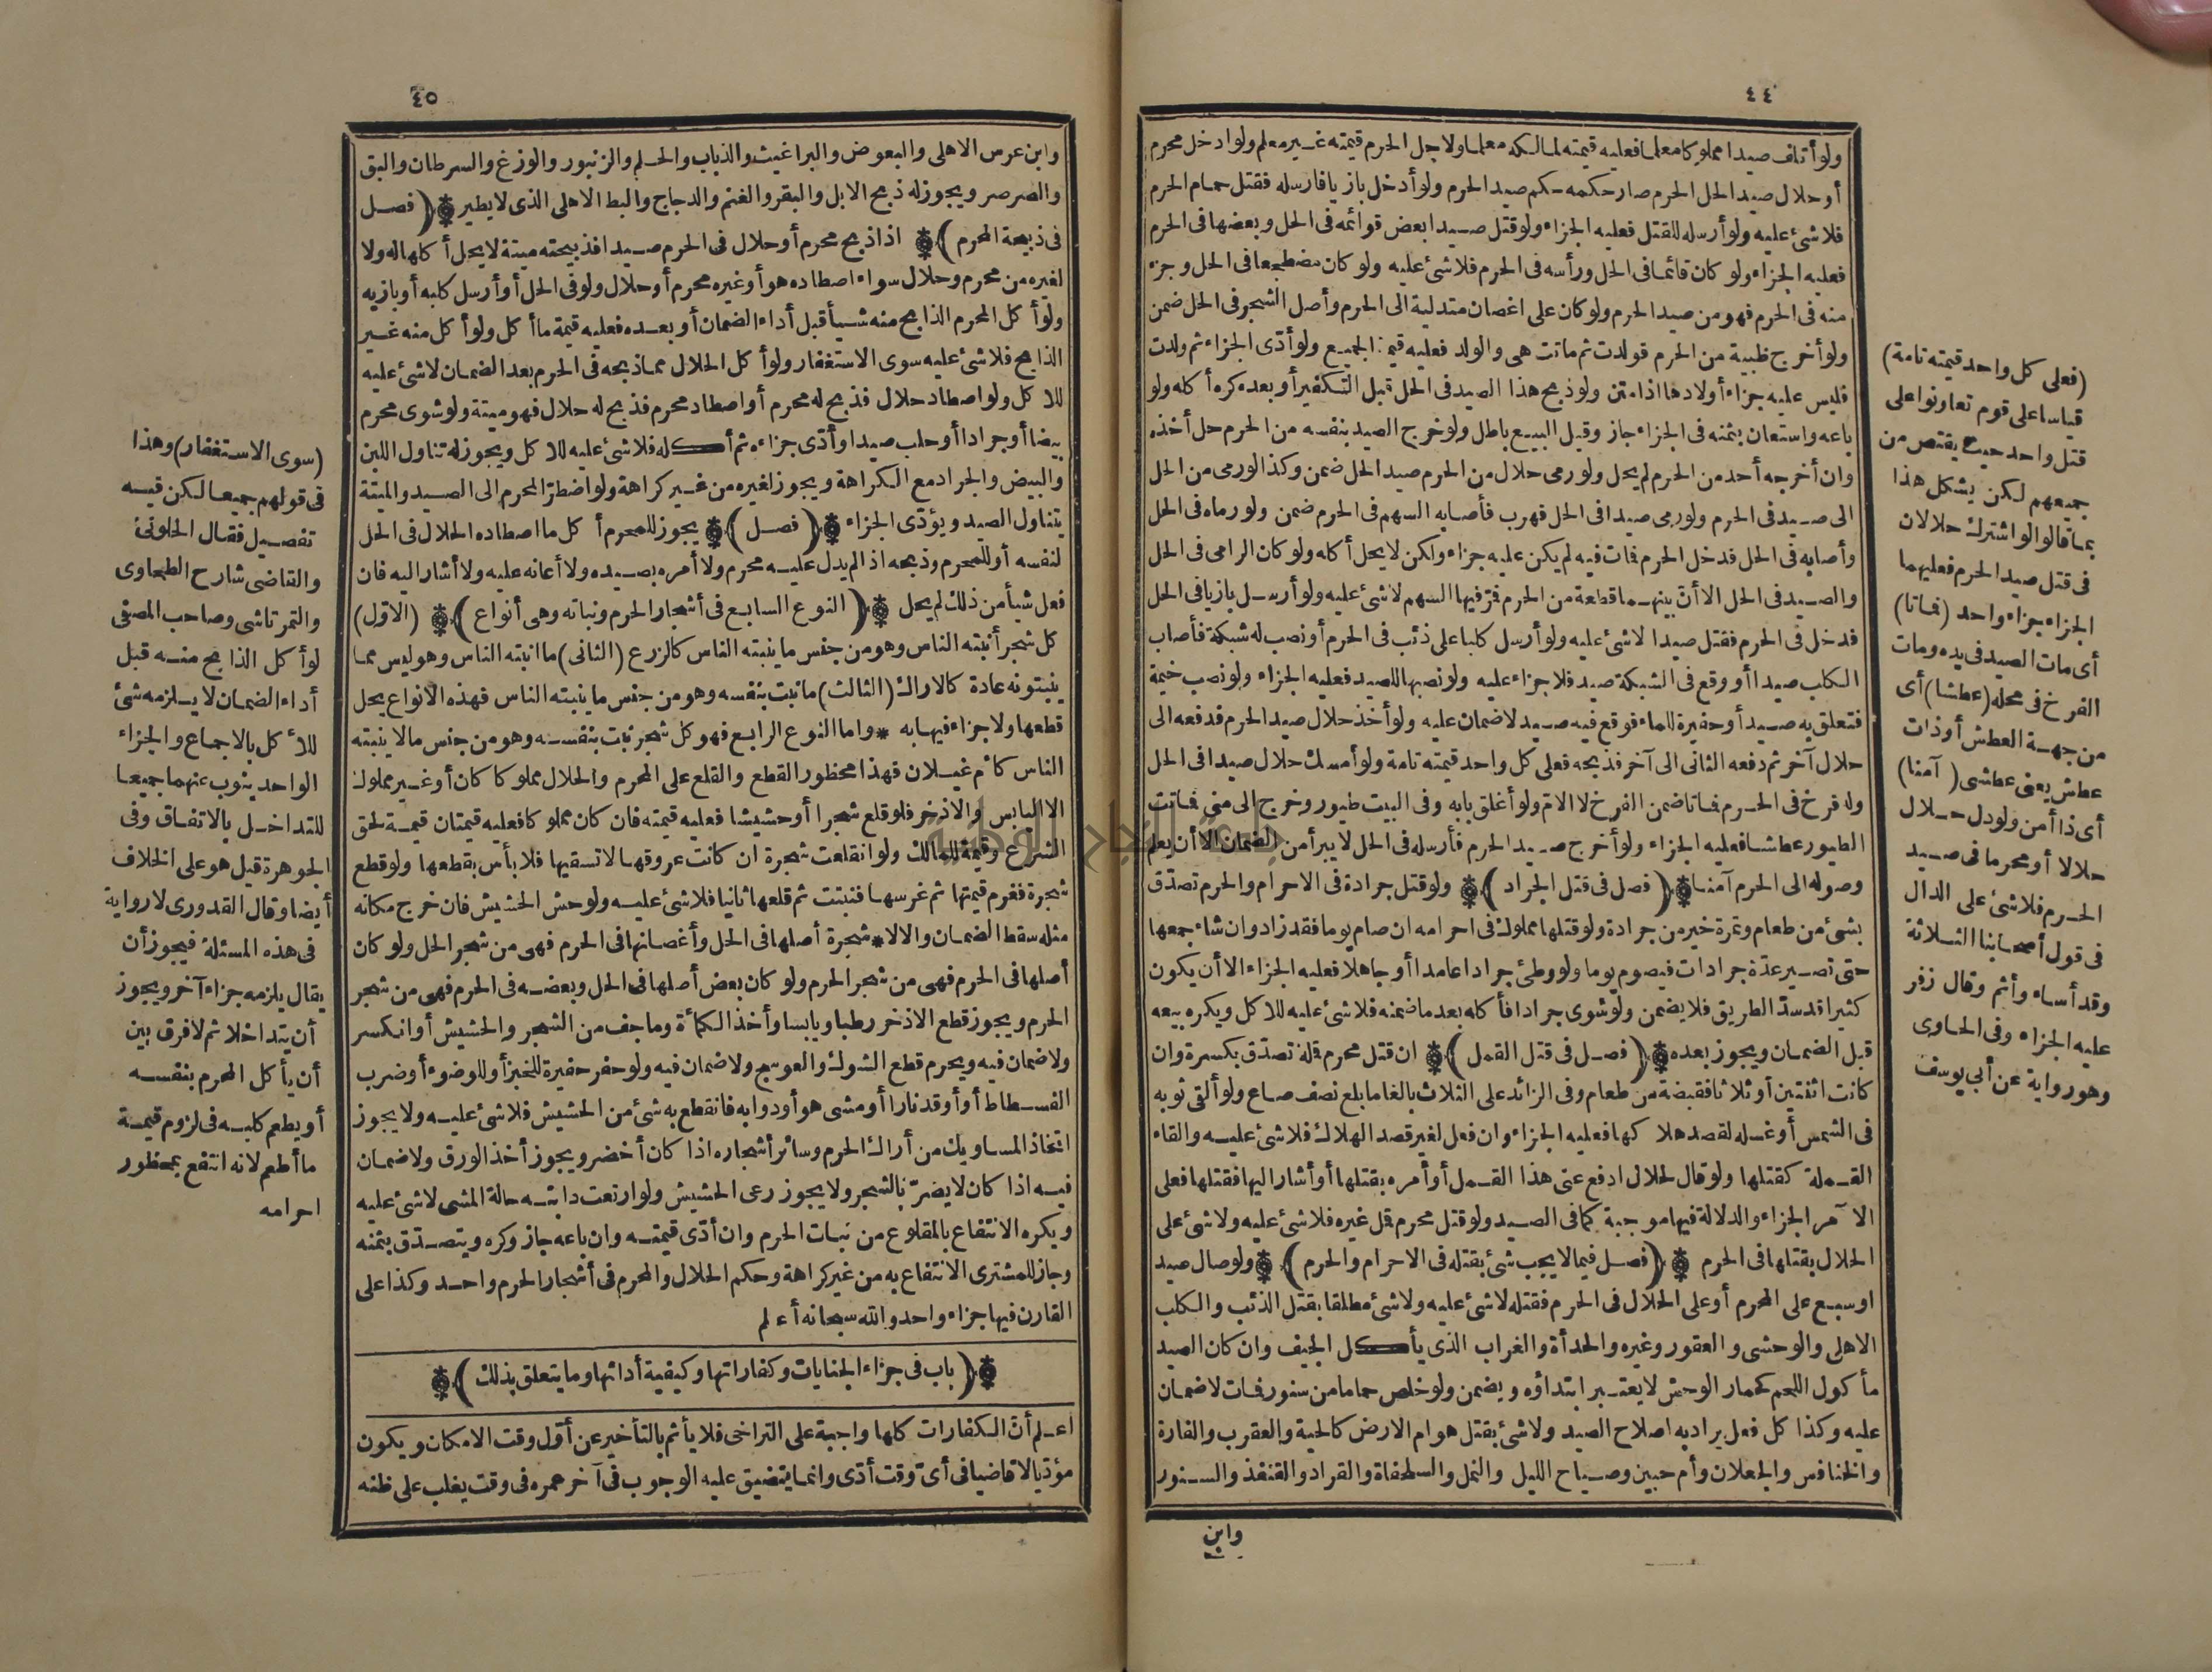 ٤٤
ولو أتلف صيدا مملوكا معلما فعليه قيمته لمالكه معلما ولاجل الحرم قيمته غير معلم ولو ادخل محرم
أو حلال صيد الحل الحرم صار حكمه حكم صيد الحرم ولو أدخل بازيا فارسله فقتل حمام الحرم
فلا شئ عليه ولو أرسله للقتل فعليه الجزاء ولو قتل صيدا بعض قوائمه فى الحل وبعضها فى الحرم
فعليه الجزاء ولو كان قائما فى الحل ورأسه فى الحرم فلا شئ عليه ولو كان مضطجعا فى الحل وجزء
منه فى الحرم فهو من صيد الحرم ولو كان على اغصان متدلية الى الحرم وأصل الشجر فى الحل ضمن
ولو أخرج ظبية من الحرم فولدت ثم ماتت هى والولد فعليه قيمة الجميع ولو أدّى الجزاء ثم ولدت
فليس عليه جزاء أولادها اذا متن ولو ذبح هذا الصيد فى الحل قبل التكفير أو بعده كره أكله ولو
باعه واستعان بثمنه فى الجزاء جاز وقيل البيع باطل ولو خرج الصيد بنفسه من الحرم حل أخذه
وان أخرجه أحد من الحرم لم يحل ولو رمى حلال من الحرم صيد الحل ضمن وكذا لو رمى من الحل
الى صيد فى الحرم ولو رمى صيدا فى الحل فهرب فأصابه السهم فى الحرم ضمن ولو رماه فى الحل
وأصابه فى الحل فدخل الحرم فمات فيه لم يكن عليه جزاء ولكن لا يحل أكله ولو كان الرامى فى الحل
والصيد فى الحل الا أنّ بينهما قطعة من الحرم فمرّ فيها السهم لا شئ عليه ولو أرسل بازيا فى الحل
فدخل فى الحرم فقتل صيدا لا شئ عليه ولو أرسل كلبا على ذئب فى الحرم أو نصب له شبكة فأصاب
الكلب صيدا أو وقع فى الشبكة صيد فلا جزاء عليه ولو نصبها للصيد فعليه الجزاء ولو نصب خيمة
فتعلق به صيد أو حفيرة للماء فوقع فيه صيد لا ضمان عليه ولو أخذ حلال صيد الحرم فدفعه الى
حلال آخر ثم دفعه الثانى الى آخر فذبحه فعلى كل واحد قيمته تامة ولو أمسك حلال صيدا فى الحل
وله فرخ فى الحرم فماتا ضمن الفرخ لا الامّ ولو أغلق بابه وفى البيت طيور وخرج الى منى فماتت
الطيور عطاشا فعليه الجزاء ولو أخرج صيد الحرم فأرسله فى الحل لا يبرأ من الضمان الا أن يعلم
وصوله الى الحرم آمنا ﴿فصل فى قتل الجراد﴾ ولو قتل جرادة فى الاحرام والحرم تصدّق
بشئ من طعام وتمرة خير من جرادة ولو قتلها مملوك فى احرامه ان صام يوما فقد زاد وان شاء جمعها
حتى تصير عدّة جرادات فيصوم يوما ولو وطئ جرادا عامدا أو جاهلا فعليه الجزاء الا أن يكون
كثيرا قد سدّ الطريق فلا يضمن ولو شوى جرادا فأكله بعد ما ضمنه فلا شئ عليه للاكل ويكره بيعه
قبل الضمان ويجوز بعده ﴿فصل فى قتل القمل﴾ ان قتل محرم قملة تصدّق بكسرة وان
كانت اثنتين أو ثلاثا فقبضة من طعام وفى الزائد على الثلاث بالغا ما بلغ نصف صاع ولو ألقى ثوبه
فى الشمس أو غسله لقصد هلاكها فعليه الجزاء وان فعل لغير قصد الهلاك فلا شئ عليه والقاء
القملة كقتلها ولو قال لحلال ادفع عنى هذا القمل أو أمره بقتلها أو أشار اليها فقتلها فعلى
الآمر الجزاء والدلالة فيها موجبة كما فى الصيد ولو قتل محرم قمل غيره فلا شئ عليه ولا شئ على
الحلال بقتلها فى الحرم ﴿فصل فيما لا يجب شئ بقتله فى الاحرام والحرم﴾ ولو صال صيد
او سبع على المحرم أو على الحلال فى الحرم فقتله لا شئ عليه ولا شئ مطلقا بقتل الذئب والكلب
الاهلى والوحشى والعقور وغيره والحدأة والغراب الذى يأكل الجيف وان كان الصيد
مأكول اللحم كحمار الوحش لا يعتبر ابتداؤه ويضمن ولو خلص حماما من سنور فمات لا ضمان
عليه وكذا كل فعل يراد به اصلاح الصيد ولا شئ بقتل هوام الارض كالحية والعقرب والفارة
والخنافس والجعلان وأم حبين وصياح الليل والنمل والسلحفاة والقراد والقنفذ والسنور
وابن
(فعلى كل واحد قيمته تامة)
قياسا على قوم تعاونوا على
قتل واحد حيث يقتص من
جميعهم لكن يشكل هذا
بما قالوا لو اشترك حلالان
فى قتل صيد الحرم فعليهما
الجزاء جزاء واحد (فماتا)
أى مات الصيد فى يده ومات
الفرخ فى محله (عطشا) أى
من جهة العطش أو ذات
عطاش يعنى عطشى (آمنا)
أى ذا أمن ولو دل حلال
حلالا أو محرما فى صيد
الحرم فلا شئ على الدال
فى قول أصحابنا الثلاثة
وقد أساء وأثم وقال زفر
عليه الجزاء وفى الحاوى
وهو رواية عن أبي يوسف
٤٥
وابن عرس الاهلى والبعوض والبراغيث والذباب والحلم والزنبور والوزغ والسرطان والبق
والصرصر ويجوز له ذبح الابل والبقر والغنم والدجاج والبط الاهلى الذى لا يطير ﴿فصل
فى ذبيحة المحرم﴾ اذا ذبح محرم أو حلال فى الحرم صيدا فذبيحته ميتة لا يحل أكلها له ولا
لغيره من محرم وحلال سواء اصطاده هو أو غيره محرم أو حلال ولو فى الحل أو أرسل كلبه أو بازيه
ولو أكل المحرم الذابح منه شيأ قبل أداء الضمان أو بعده فعليه قيمة ما أكل ولو أكل منه غير
الذابح فلا شئ عليه سوى الاستغفار ولو أكل الحلال مما ذبحه فى الحرم بعد الضمان لا شئ عليه
للاكل ولو اصطاد حلال فذبح له محرم أو اصطاد محرم فذبح له حلال فهو ميتة ولو شوى محرم
بيضا أو جرادا أو حلب صيدا وأدّى جزاءه ثم أكله فلا شئ عليه للاكل ويجوز له تناول اللبن
والبيض والجراد مع الكراهة ويجوز لغيره من غير كراهة ولو اضطرّ المحرم الى الصيد والميتة
يتناول الصيد ويؤدّى الجزاء ﴿فصل﴾ يجوز للمحرم أكل ما اصطاده الحلال فى الحل
لنفسه أو للمحرم وذبحه اذا لم يدل عليه محرم ولا أمره بصيده ولا أعانه عليه ولا أشار اليه فان
فعل شيأ من ذلك لم يحل ﴿النوع السابع فى أشجار الحرم ونباته وهى أنواع﴾ (الاوّل)
كل شجر أنبته الناس وهو من جنس ما ينبته الناس كالزرع (الثانى) ما انبته الناس وهو ليس مما
ينبتونه عادة كالاراك (الثالث) ما نبت بنفسه وهو من جنس ما ينبته الناس فهذه الانواع يحل
قطعها ولا جزاء فيها به * واما النوع الرابع فهو كل شجر نبت بنفسه وهو من جنس ما لا ينبته
الناس كأم غيلان فهذا محظور القطع والقلع على المحرم والحلال مملوكا كان أو غير مملوك
الا اليابس والاذخر فلو قلع شجرا أو حشيشا فعليه قيمته فان كان مملوكا فعليه قيمتان قيمة لحق
الشرع وقيمة للمالك ولو انقلعت شجرة ان كانت عروقها لا تسقيها فلا بأس بقطعها ولو قطع
شجرة فغرم قيمتها ثم غرسها فنبتت ثم قلعها ثانيا فلا شئ عليه ولو حش الحشيش فان خرج مكانه
مثله سقط الضمان والا لا * شجرة أصلها فى الحل وأغصانها فى الحرم فهى من شجر الحل ولو كان
أصلها فى الحرم فهى من شجر الحرم ولو كان بعض أصلها فى الحل وبعضه فى الحرم فهى من شجر
الحرم ويجوز قطع الاذخر رطبا ويابسا وأخذ الكمأة وما جف من الشجر والحشيش أو انكسر
ولا ضمان فيه ويحرم قطع الشوك والعوسج ولا ضمان فيه ولو حفر حفيرة للخبز أو للوضوء أو ضرب
الفسطاط أو أوقد نارا أو مشى هو أو دوابه فانقطع به شئ من الحشيش فلا شئ عليه ولا يجوز
اتخاذ المساويك من أراك الحرم وسائر أشجاره اذا كان أخضر ويجوز أخذ الورق ولا ضمان
فيه اذا كان لا يضرّ بالشجر ولا يجوز رعى الحشيش ولو ارتعت دابته حالة المشى لا شئ عليه
ويكره الانتفاع بالمقلوع من نبات الحرم وان أدّى قيمته وان باعه جاز وكره ويتصدّق بثمنه
وجاز للمشترى الانتفاع به من غير كراهة وحكم الحلال والمحرم فى أشجار الحرم واحد وكذا على
القارن فيها جزاء واحد والله سبحانه أعلم
﴿باب فى جزاء الجنايات وكفاراتها وكيفية أدائها وما يتعلق بذلك﴾
اعلم أنّ الكفارات كلها واجبة على التراخى فلا يأثم بالتأخير عن أوّل وقت الامكان ويكون
مؤدّيا لا قاضيا فى أىّ وقت أدّى وانما يتضيق عليه الوجوب فى آخر عمره فى وقت يغلب على ظنه
(سوى الاستغفار) وهذا
فى قولهم جميعا لكن فيه
تفصيل فقال الحلونى
والقاضى شارح الطحاوى
والتمرتاشى وصاحب المصفى
لو أكل الذابح منه قبل
أداء الضمان لا يلزمه شئ
للأكل بالاجماع والجزاء
الواحد ينوب عنهما جميعا
للتداخل بالاتفاق وفى
الجوهرة قيل هو على الخلاف
أيضا وقال القدورى لا رواية
فى هذه المسئلة فيجوز أن
يقال يلزمه جزاء آخر ويجوز
أن يتداخلا ثم لا فرق بين
أن يأكل المحرم بنفسه
أو يطعم كلبه فى لزوم قيمة
ما أطعم لانه انتفع بمحظور
احرامه